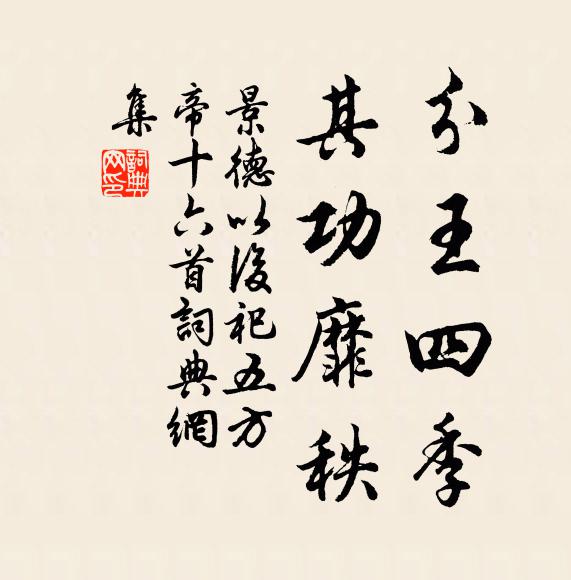 分王四季
其功靡秩
景德以後祀五方
帝十六首詞典網
集
詞典網印